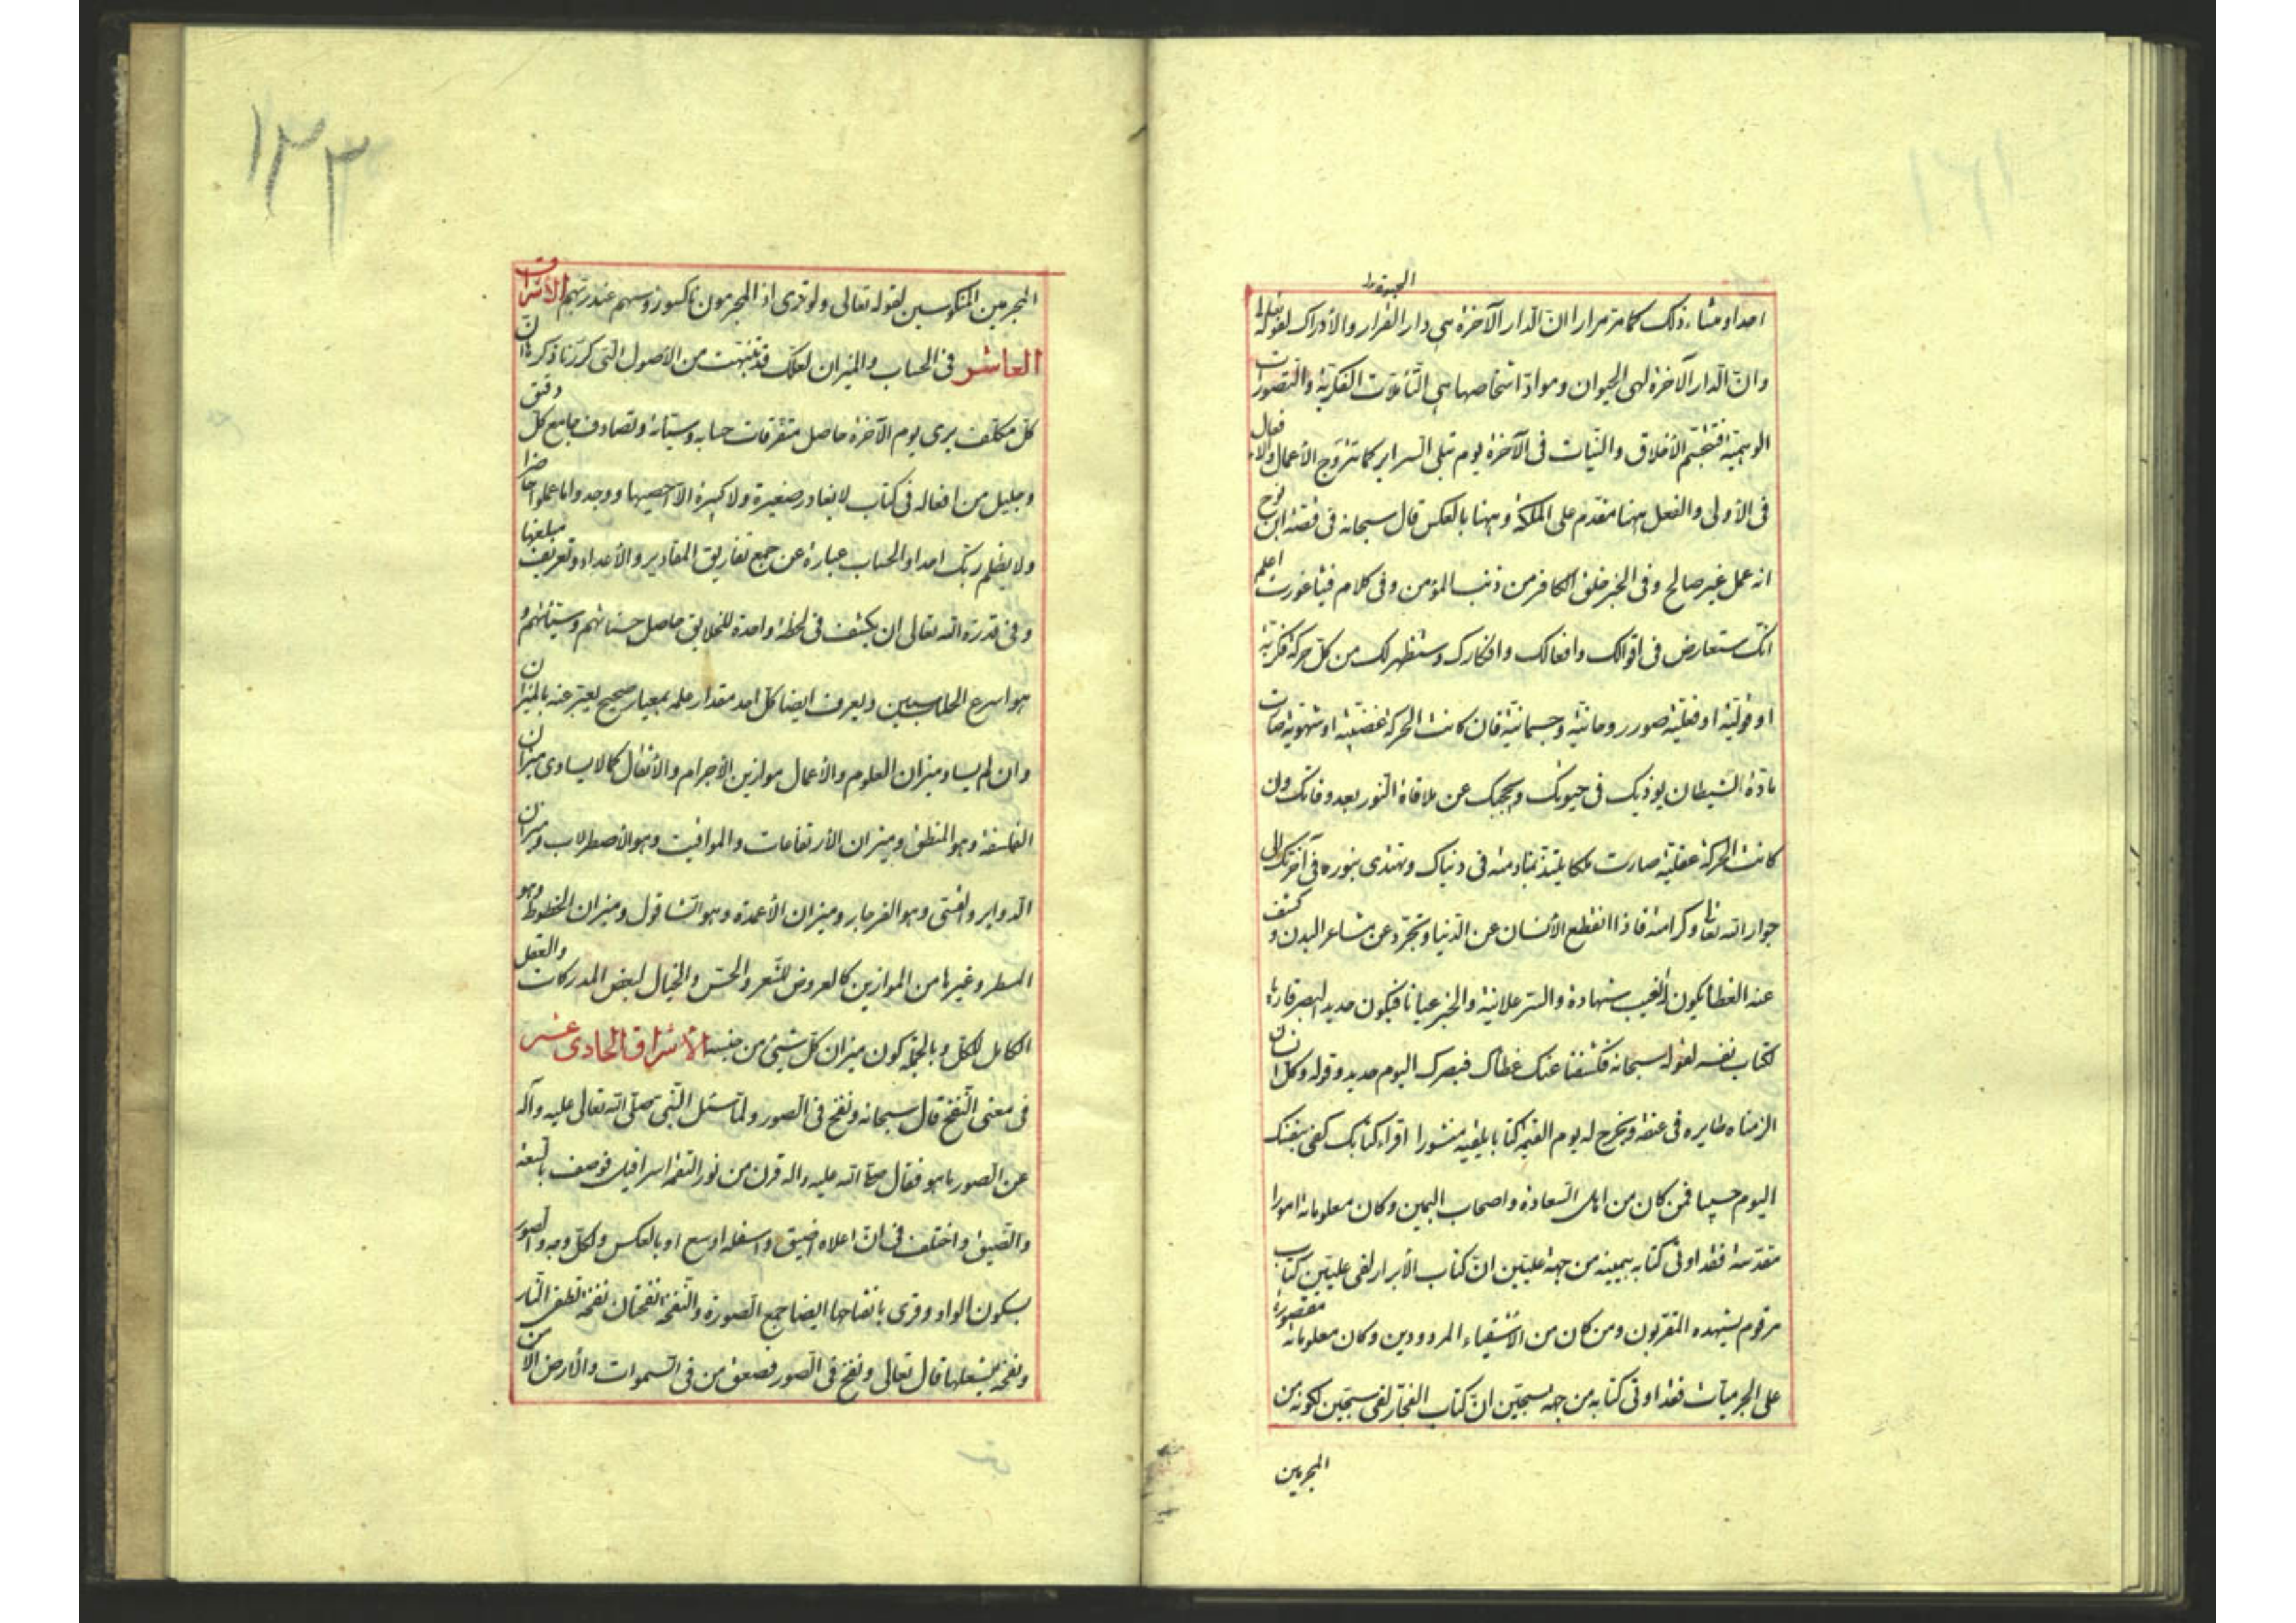 احدا و منشاء ذلك كما مر مرارا ان الدار الآخرة هي دار القرار والأدراك لقوله تعالى
وان الدار الآخرة لهى الحيوان ومواد اشخاصها هي التأملات الفكرية والتصورات
الوهمية فتتجسم الأخلاق والنيات فى الآخرة يوم تبلى السراير كما تتروح الأعمال والافعال
فى الأولى والفعل ههنا مقدم على الملكة وههنا بالعكس قال سبحانه فى قصة ابن نوح
انه عمل غير صالح وفى الخبر خلق الكافر من ذنب المؤمن وفى كلام فيثاغورت اعلم
انك ستعارض فى اقوالك وافعالك وافكارك وستظهر لك من كل حركة فكرية
او قولية او فعلية صور روحانية وجسمانية فان كانت الحركة غضبية او شهوية صارت
مادة الشيطان يوذيك فى حيوتك ويحجبك عن ملاقاة النور بعد وفاتك وان
كانت الحركة عقلية صارت ملكا يلتذ بمنادمته فى دنياك وتهتدى بنوره فى آخرتك الى
جوار الله تعالى وكرامته فاذا انقطع الأنسان عن الدنيا وتجرد عن مشاعر البدن وكشف
عنه الغطا يكون الغيب شهادة والسر علانية والخبر عيانا فيكون حديد البصر قاريا
لكتاب نفسه لقوله سبحانه فكشفنا عنك غطاك فبصرك اليوم حديد وقوله وكل انسان
الزمناه طايره فى عنقه ونخرج له يوم القيمة كتابا يلقيه منشورا اقراء كتابك كفى بنفسك
اليوم حسيبا فمن كان من اهل السعادة واصحاب اليمين وكان معلوماته امورا
مقدسة فقد اوتى كتابه بيمينه من جهة عليين ان كتاب الأبرار لفى عليين كتاب
مرقوم يشهده المقربون ومن كان من الأشقياء المردودين وكان معلوماته مقصورة
على الجرميات فقد اوتى كتابه من جهة سجين ان كتاب الفجار لفى سجين لكونه من
المجرمين
١٣٣
المجرمين المنكوسين لقوله تعالى ولو ترى اذ المجرمون ناكسوا رؤسهم عند ربهم الأشراق
العاشر فى الحساب والميزان لعلك قد تنبهت من الأصول التى كررنا ذكرها ان
كل مكلف يرى يوم الآخرة حاصل متفرقات حسابه وسيئاته وتصادف جامع كل دقيق
وجليل من افعاله فى كتاب لا يغادر صغيرة ولا كبيرة الا احصيها ووجدوا ما عملوا حاضرا
ولا يظلم ربك احدا والحساب عبارة عن جمع تفاريق المقادير والأعداد وتعريف مبلغها
وفى قدرة الله تعالى ان يكشف فى لحظة واحدة للخلايق حاصل حسناتهم وسيئاتهم و
هو اسرع الحاسبين ويعرف ايضا كل احد مقدار عمله بمعيار صحيح يعبر عنه بالميزان
وان لم يساو ميزان العلوم والأعمال موازين الأجرام والأثقال كما لا يساوى ميزان
الفلسفة وهو المنطق وميزان الأرتفاعات والمواقيت وهو الأصطرلاب وميزان
الدواير والقسى وهو الفرجار وميزان الأعمدة وهو الشاقول وميزان الخطوط وهو
المسطر وغيرها من الموازين كالعروض للشعر والحس والخيال لبعض المدركات والعقل
الكامل للكل وبالجملة كون ميزان كل شيئ من جنسه الأشراق الحادى عشر
فى معنى النفخ قال سبحانه ونفخ فى الصور ولما سئل النبى صلى الله تعالى عليه وآله
عن الصور ما هو فقال ص الله عليه واله قرن من نور التقمه اسرافيل فوصف بالسعة
والضيق واختلف فى ان اعلاه اضيق واسفله اوسع او بالعكس ولكل وجه والصور
بسكون الواو وقرى بانفتاحها ايضا جمع الصورة والنفخة نفختان نفخة تطفى النار
ونفخة يشعلها قال تعالى ونفخ فى الصور فصعق من فى السموات والأرض الا من